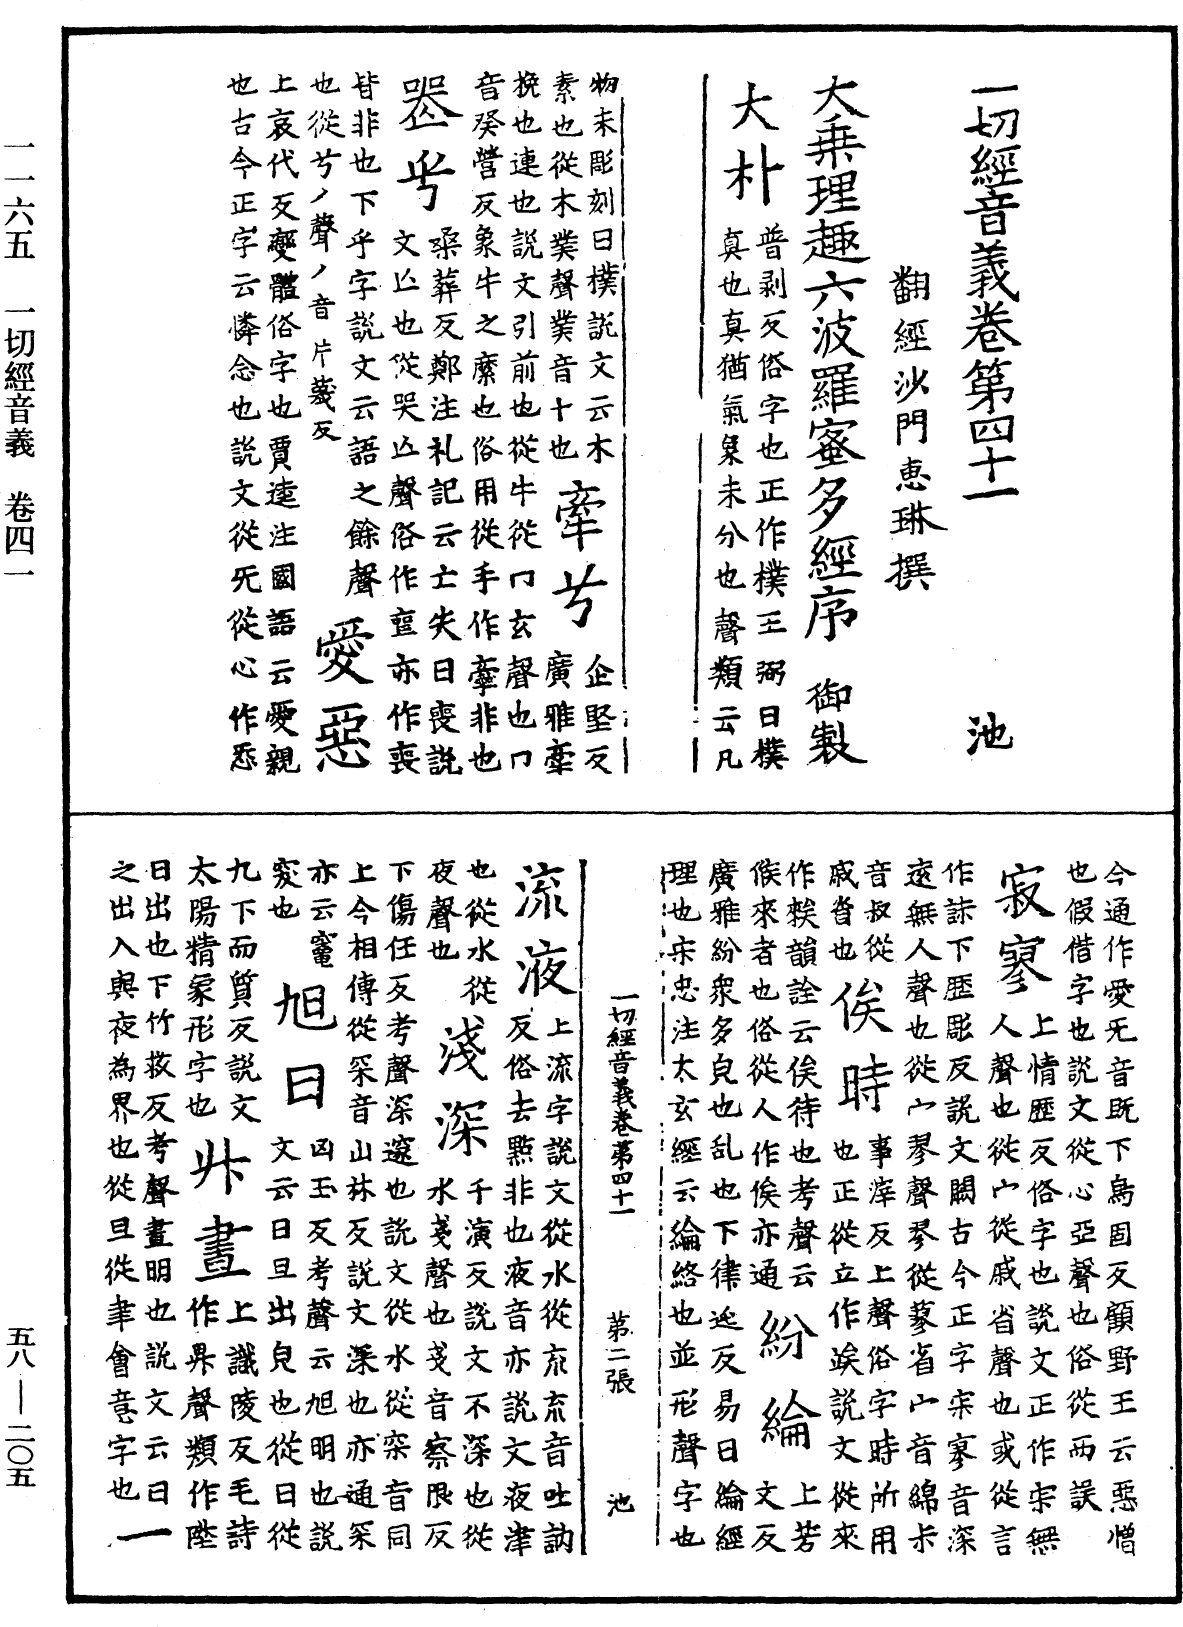 一一六五　一切經音義　卷四一
一切經音義卷第四十一　池
翻經沙門惠琳撰
大乗理趣六波羅蜜多經序　御製
大朴　普剥反俗字也正作樸王弼曰樸
真也真猶氣㒵未分也聲類云凡
物未彫刻曰樸説文云木
素也從木菐聲菐音卜也　牽兮　企堅反廣雅牽
挽也連也説文引前也從牛從冖玄聲也冖
音癸營反象牛之縻也俗用從手作㩃非也
喪乎　桑葬反鄭注礼記云亡失曰喪説
文亾也從哭亾聲俗作䘮亦作丧
皆非也下乎字説文云語之餘聲
也從兮丿聲丿音片蔑反　愛惡
上哀代反變體俗字也賈逵注國語云愛親
也古今正字云憐念也説文從旡從心作㤅
今通作愛旡音既下烏固反顧野王云惡憎
也假借字也説文從心亞聲也俗從西誤
寂寥　上情歷反俗字也説文正作宗無
人聲也從宀從戚省聲也或從言
作諔下歷彫反説文闕古今正字宗寥音深
遠無人聲也從宀翏聲翏從蓼省宀音綿尗
音叔從戚聲也　俟時　事滓反上聲俗字時所用
也正從立作竢説文從來
作䅆韻詮云俟待也考聲云
候來者也俗從人作俟亦通　紛綸　上芳文反
廣雅紛衆多皃也乱也下律迍反易曰綸經
理也宋忠注太玄經云綸絡也並形聲字也
一切經音義卷第四十一　第二張　池
流液　上流字説文從水從㐬㐬音吐訥
反俗去點非也液音亦説文夜津
也從水從夜聲也　淺深　千演反説文不深也從
水戔聲也戔音察限反
下傷任反考聲深邃也説文從水從罙音同
上今相傳從罙音山林反説文深也亦通罙
亦云竈突也　旭日　凶玉反考聲云旭明也説
文云日旦出皃也從日從
九下而質反説文
太陽精象形字也　升晝　上識陵反毛詩
作昇聲類作陞
日出也下竹救反考聲晝明也説文云日
之出入與夜為界也從旦從聿會意字也　一
五八——二〇五